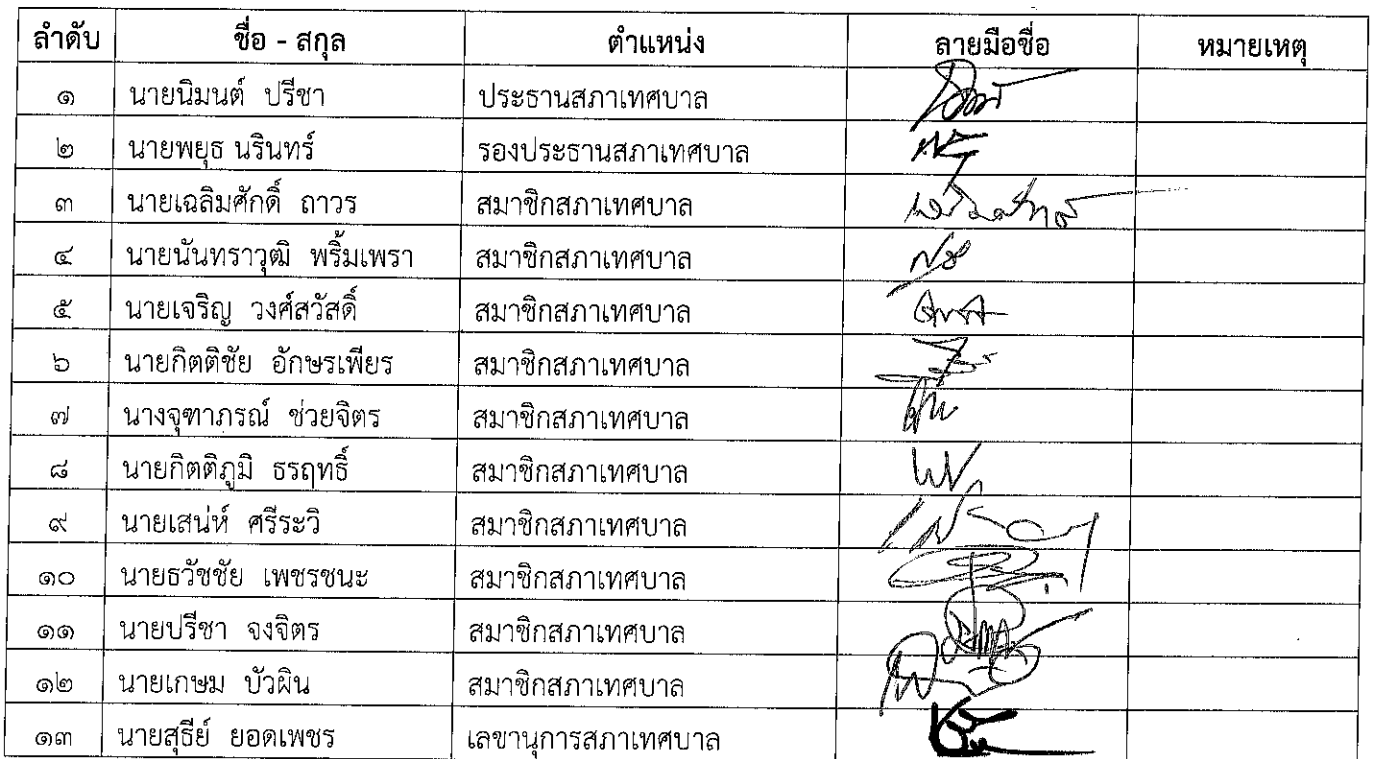 ลำดับ ชื่อ - สกุล ตำแหน่ง ลายมือชื่อ หมายเหตุ
๑ นายนิมนต์ ปรีชา ประธานสภาเทศบาล
๒ นายพยุธ นรินทร์ รองประธานสภาเทศบาล
๓ นายเฉลิมศักดิ์ ถาวร สมาชิกสภาเทศบาล
๔ นายนันทราวุฒิ พริ้มเพรา สมาชิกสภาเทศบาล
๕ นายเจริญ วงศ์สวัสดิ์ สมาชิกสภาเทศบาล
๖ นายกิตติชัย อักษรเพียร สมาชิกสภาเทศบาล
๗ นางจุฑาภรณ์ ช่วยจิตร สมาชิกสภาเทศบาล
๘ นายกิตติภูมิ ธรฤทธิ์ สมาชิกสภาเทศบาล
๙ นายเสน่ห์ ศรีระวิ สมาชิกสภาเทศบาล
๑๐ นายธวัชชัย เพชรชนะ สมาชิกสภาเทศบาล
๑๑ นายปรีชา จงจิตร สมาชิกสภาเทศบาล
๑๒ นายเกษม บัวผิน สมาชิกสภาเทศบาล
๑๓ นายสุธีย์ ยอดเพชร เลขานุการสภาเทศบาล